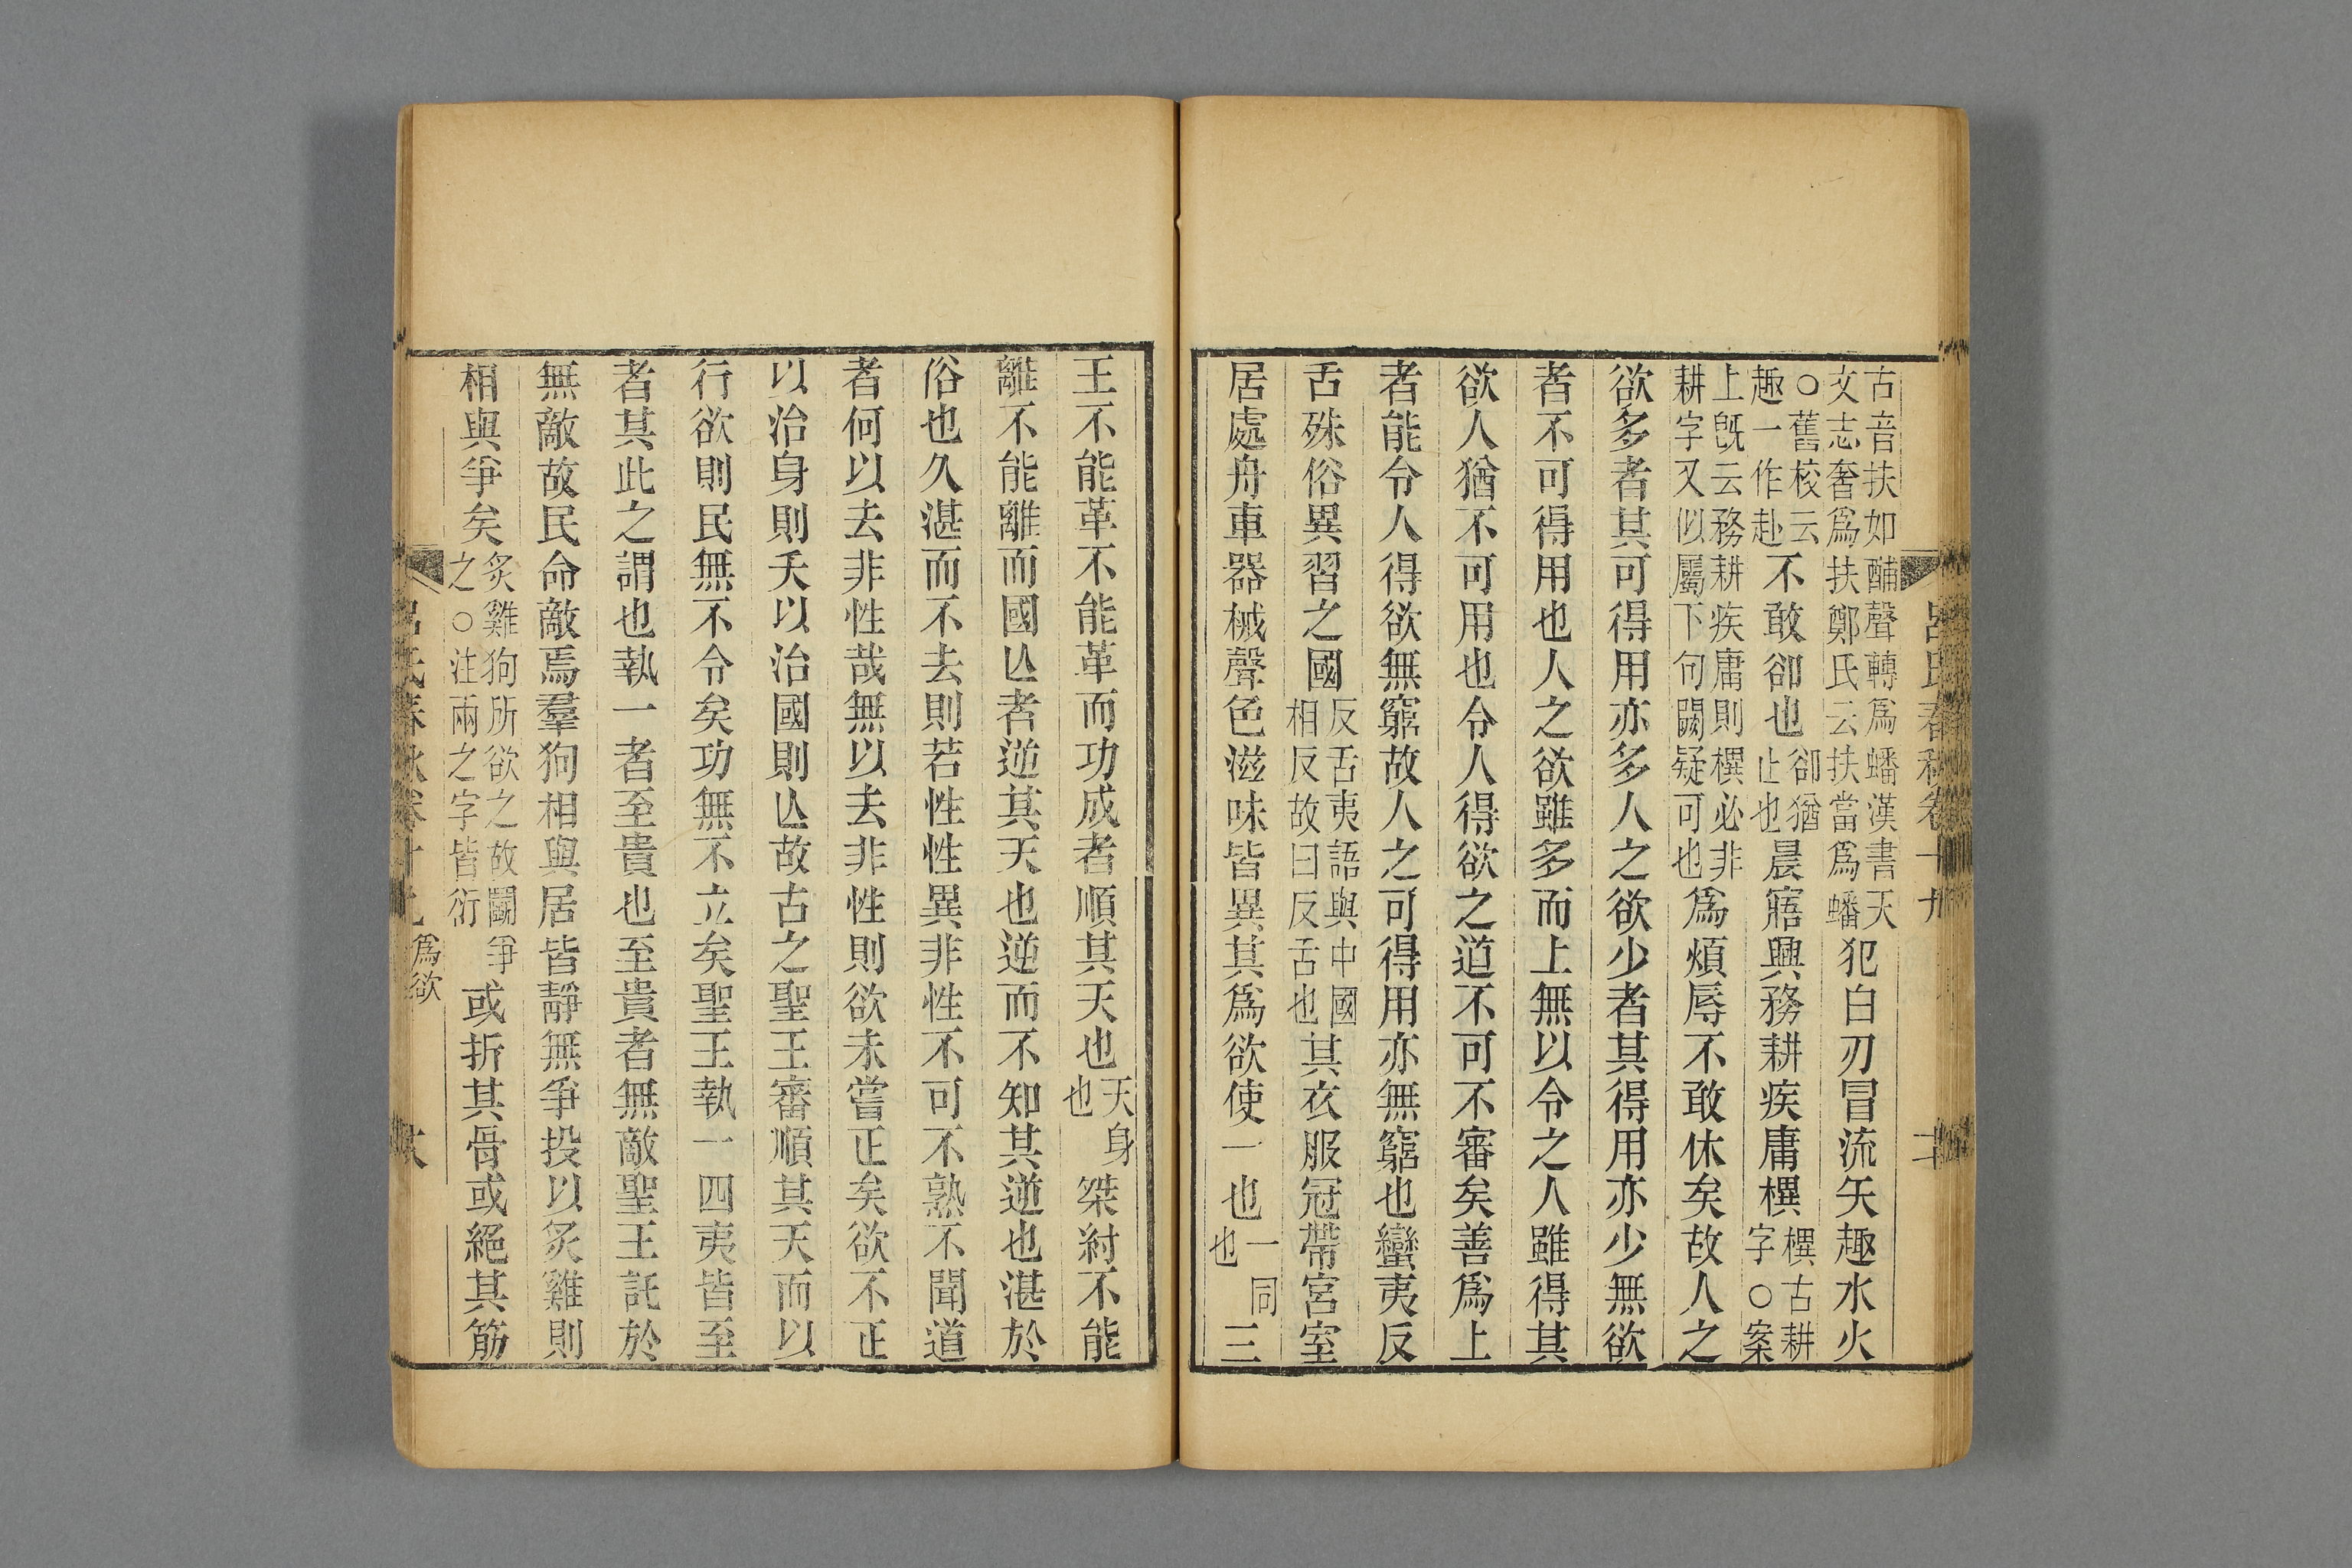 古音扶如酺聲轉爲蟠漢書天
文志奢爲扶鄭氏云扶當爲蟠
犯白刃冒流矢趣水火
○舊校云
趣一作赴
不敢卻也
卻猶
止也
晨寤興務耕疾庸𣚙
𣚙古耕
字○案
上旣云務耕疾庸則𣚙必非
耕字又似屬下句闕疑可也
爲煩辱不敢休矣故人之
欲多者其可得用亦多人之欲少者其得用亦少無欲
者不可得用也人之欲雖多而上無以令之人雖得其
欲人猶不可用也令人得欲之道不可不審矣善爲上
者能令人得欲無窮故人之可得用亦無窮也蠻夷反
舌殊俗異習之國
反舌夷語與中國
相反故曰反舌也
其衣服冠帶宮室
居處舟車器械聲色滋味皆異其爲欲使一也
一同
也
三
王不能革不能革而功成者順其天也
天身
也
桀紂不能
離不能離而國亾者逆其天也逆而不知其逆也湛於
俗也久湛而不去則若性性異非性不可不熟不聞道
者何以去非性哉無以去非性則欲未嘗正矣欲不正
以治身則夭以治國則亾故古之聖王審順其天而以
行欲則民無不令矣功無不立矣聖王執一四夷皆至
者其此之謂也執一者至貴也至貴者無敵聖王託於
無敵故民命敵焉羣狗相與居皆靜無爭投以炙雞則
相與爭矣
炙雞狗所欲之故鬬爭
之○注兩之字皆衍
或折其骨或絕其筋
爲欲